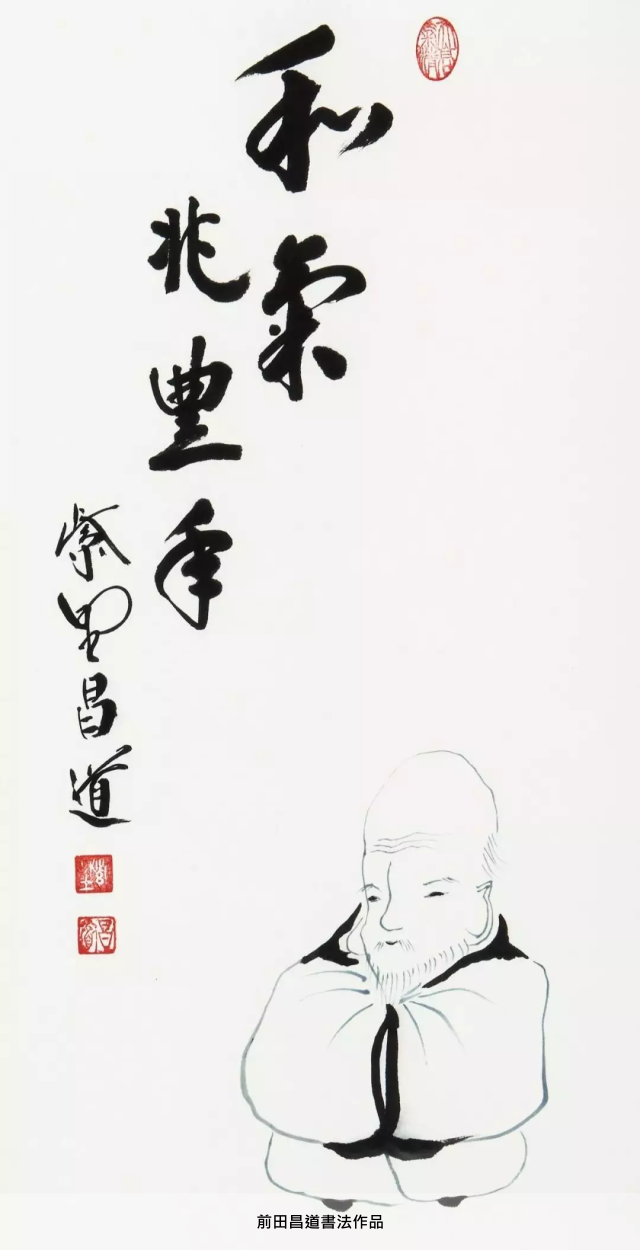 和氣
兆豊年
紫野昌道
前田昌道書法作品